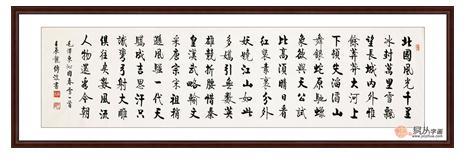 北國風光千里
冰封萬里雪飄
望長城內外惟
餘莽莽大河上
下頓失滔滔山
舞銀蛇原馳蠟
象欲與天公試
比高須晴日看
紅裝素裹分外
妖嬈江山如此
多嬌引無數英
雄競折腰惜秦
皇漢武略輸文
采唐宗宋祖稍
遜風騷一代天
驕成吉思汗只
識彎弓射大雕
俱往矣數風流
人物還看今朝
毛澤東沁園春雪一首
書